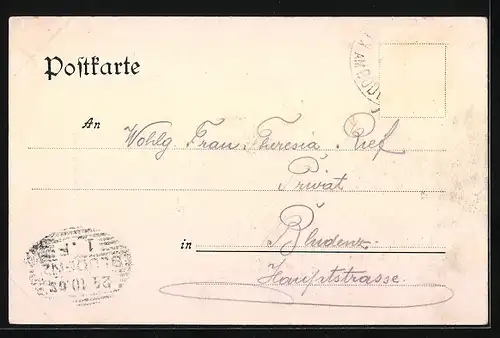 Postkarte
An Wohlg. Frau Theresia
Privat
in Bludenz
Hauptstrasse.